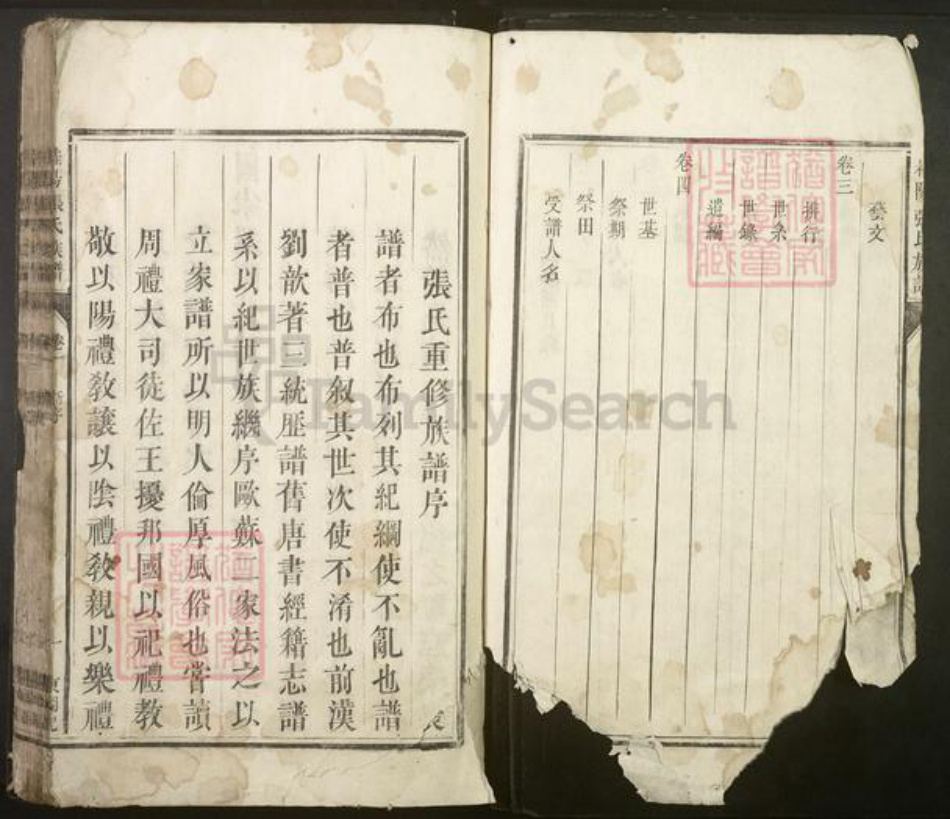 藝文
卷三
排行
世系
世錄
遺編
卷四
世基
祭期
祭田
受譜人名
張氏重修族譜序
譜者布也布列其紀綱使不亂也譜
者普也普叙其世次使不淆也前漢
劉歆著三統歷譜舊唐書經籍志譜
系以紀世族繼序歐蘇二家法之以
立家譜所以明人倫厚風俗也嘗讀
周禮大司徒佐王擾邦國以祀禮教
敬以陽禮教讓以陰禮教親以樂禮
張氏族譜
卷一
FamilySearch